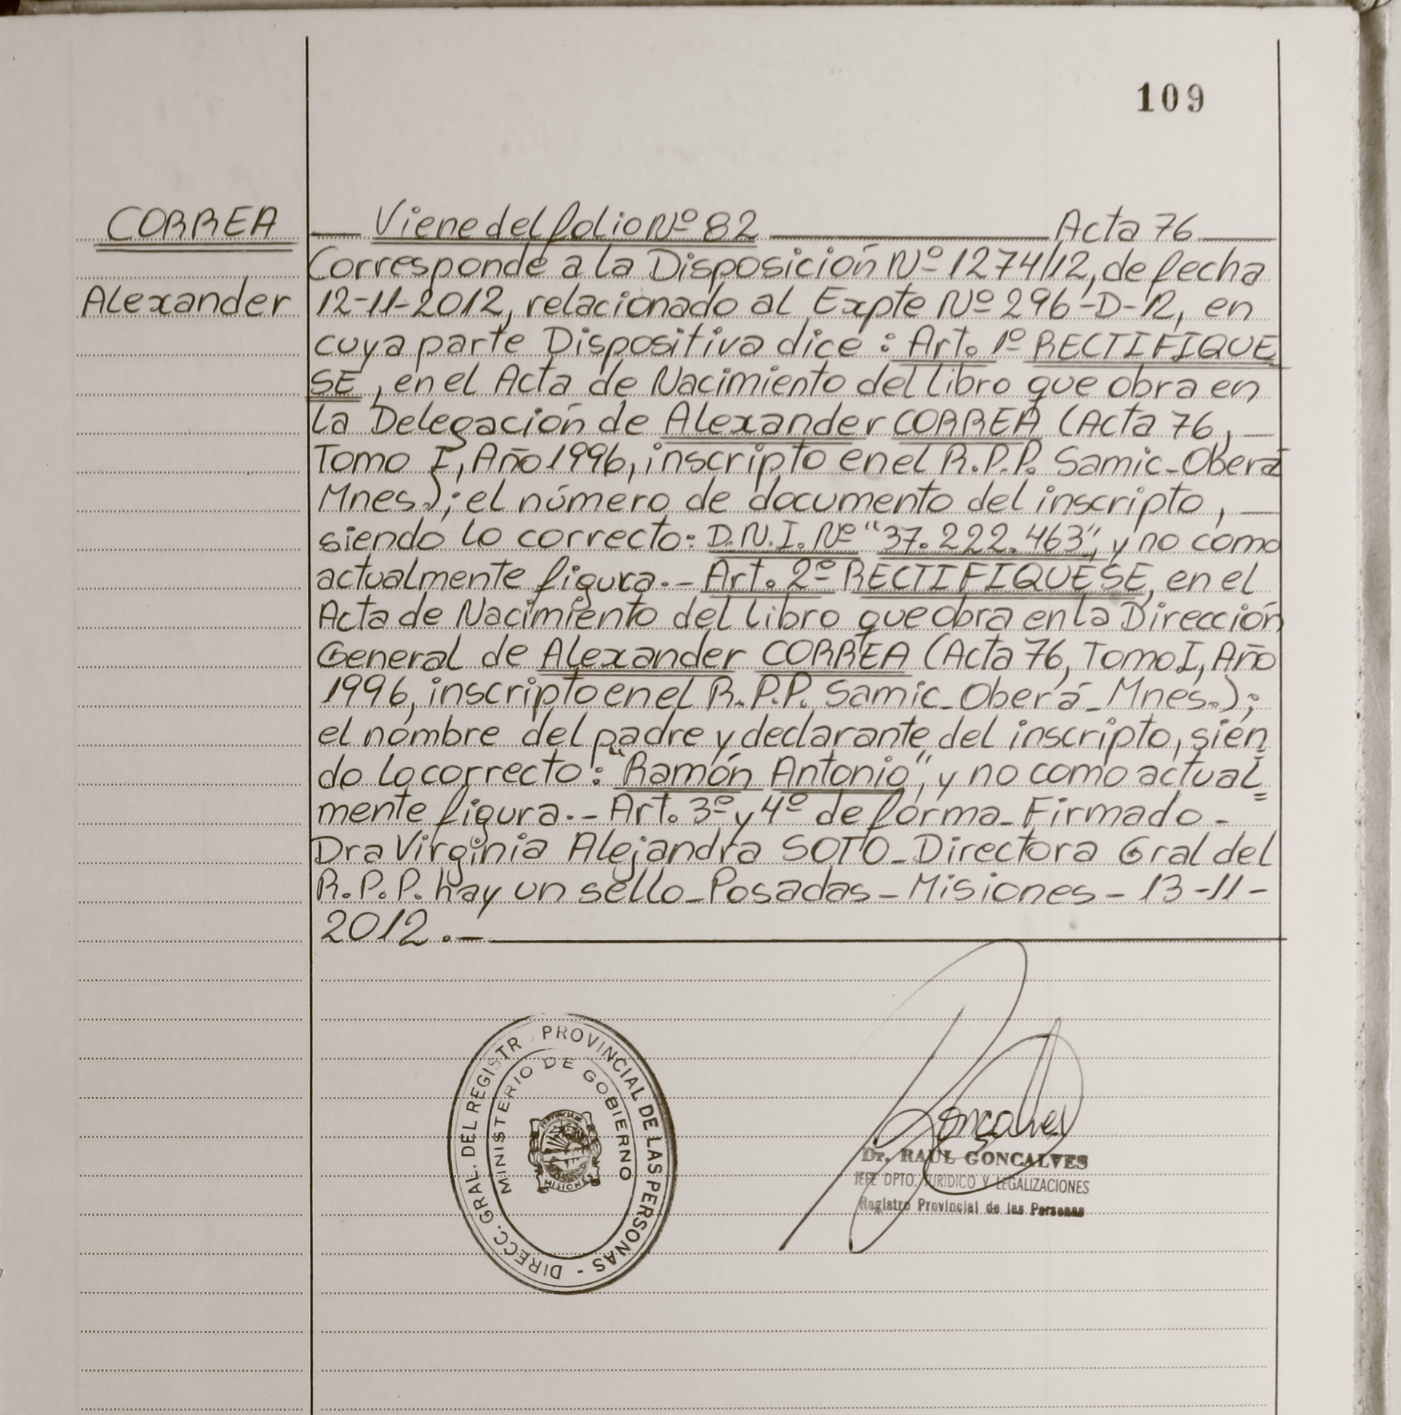 109
CORREA Viene del folio Nº 82 Acta 76
Corresponde a la Disposición Nº 1274/12, de fecha
Alexander 12-11-2012, relacionado al Expte Nº 296-D-12, en
cuya parte Dispositiva dice: Art. 1º RECTIFIQUE
SE, en el Acta de Nacimiento del libro que obra en
la Delegación de Alexander CORREA (Acta 76,
Tomo I, Año 1996, inscripto en el R.P.P. Samic-Oberá
Mnes.); el número de documento del inscripto,
siendo lo correcto: D.N.I. Nº "37.222.463", y no como
actualmente figura.- Art. 2º RECTIFIQUESE, en el
Acta de Nacimiento del libro que obra en la Dirección
General de Alexander CORREA (Acta 76, Tomo I, Año
1996, inscripto en el R.P.P. Samic-Oberá-Mnes.);
el nombre del padre y declarante del inscripto, sien
do lo correcto: "Ramón Antonio", y no como actual=
mente figura.- Art. 3º y 4º de forma-Firmado-
Dra Virginia Alejandra SOTO-Directora Gral del
R.P.P. hay un sello-Posadas-Misiones-13-11-
2012.-
DIRECC. GRAL. DEL REGISTR PROVINCIAL DE LAS PERSONAS -
MINISTERIO DE GOBIERNO
MISIONES
Goncalves
Dr. RAUL GONCALVES
JEFE DPTO. JURIDICO Y LEGALIZACIONES
Registro Provincial de las Personas